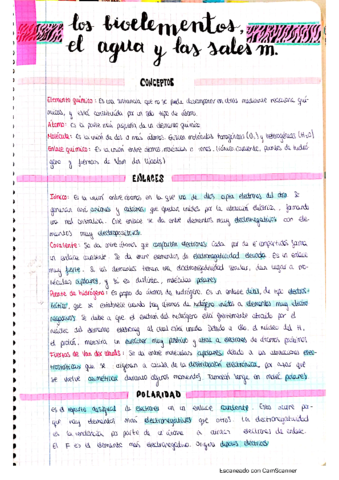 los bioelementos,
el agua y las sales m.
CONCEPTOS
Elemento químico: Es una sustancia que no se puede descomponer en otras mediante reacciones quí-
micas, y está constituido por un solo tipo de átomo.
Átomo: Es la parte más pequeña de un elemento químico.
Molécula: Es la unión de dos o más átomos. Existen moléculas homogéneas (O₂) y heterogéneas (H₂O)
Enlace químico: Es la unión entre átomos, moléculas o iones. (iónico, covalente, puentes de hidró-
geno y fuerzas de Van der Waals)
ENLACES
Iónico: Es la unión entre átomos en la que uno de ellos capta electrones del otro. Se
generan así aniones y cationes que quedan unidos por la atracción eléctrica, formando
una red cristalina. Este enlace se da entre elementos muy electronegativos con ele-
mentos muy electropositivos.
Covalente: Se da entre átomos que comparten electrones
un enlace covalente. Se da entre elementos de electronegatividad elevada. Es un enlace
muy fuerte. Si los elementos tienen una electronegatividad similar, dan lugar a mo-
léculas apolares, y si es distinta, moléculas polares.
Puente de hidrógeno: Es propio de átomos de hidrógeno. Es un enlace débil, de tipo electros-
tático, que se establece cuando hay átomos de hidrógeno unidos a elementos muy electro-
negativos. Se debe a que el electrón del hidrógeno está fuertemente atraído por el
núcleo del elemento electroneg. al cual está unido. Debido a ello, el núcleo del H,
el protón, muestra un carácter muy positivo y atrae a electrones de átomos próximos.
Fuerzas de Van der Waals: Se da entre moléculas apolares debido a las atracciones elec-
trostáticas que se originan a causa de la distribución electrónica, por zonas que
se vuelve asimétrica durante algunos momentos. También tienen en moléc. polares
POLARIDAD
Es el reparto desigual de electrones en un enlace covalente. Esto ocurre por-
que hay elementos más electronegativos que otros. La electronegatividad
es la tendencia por parte de un átomo a atraer electrones de enlace.
El F es el elemento más electronegativo. Origina dipolos eléctricos
Escaneado con CamScanner